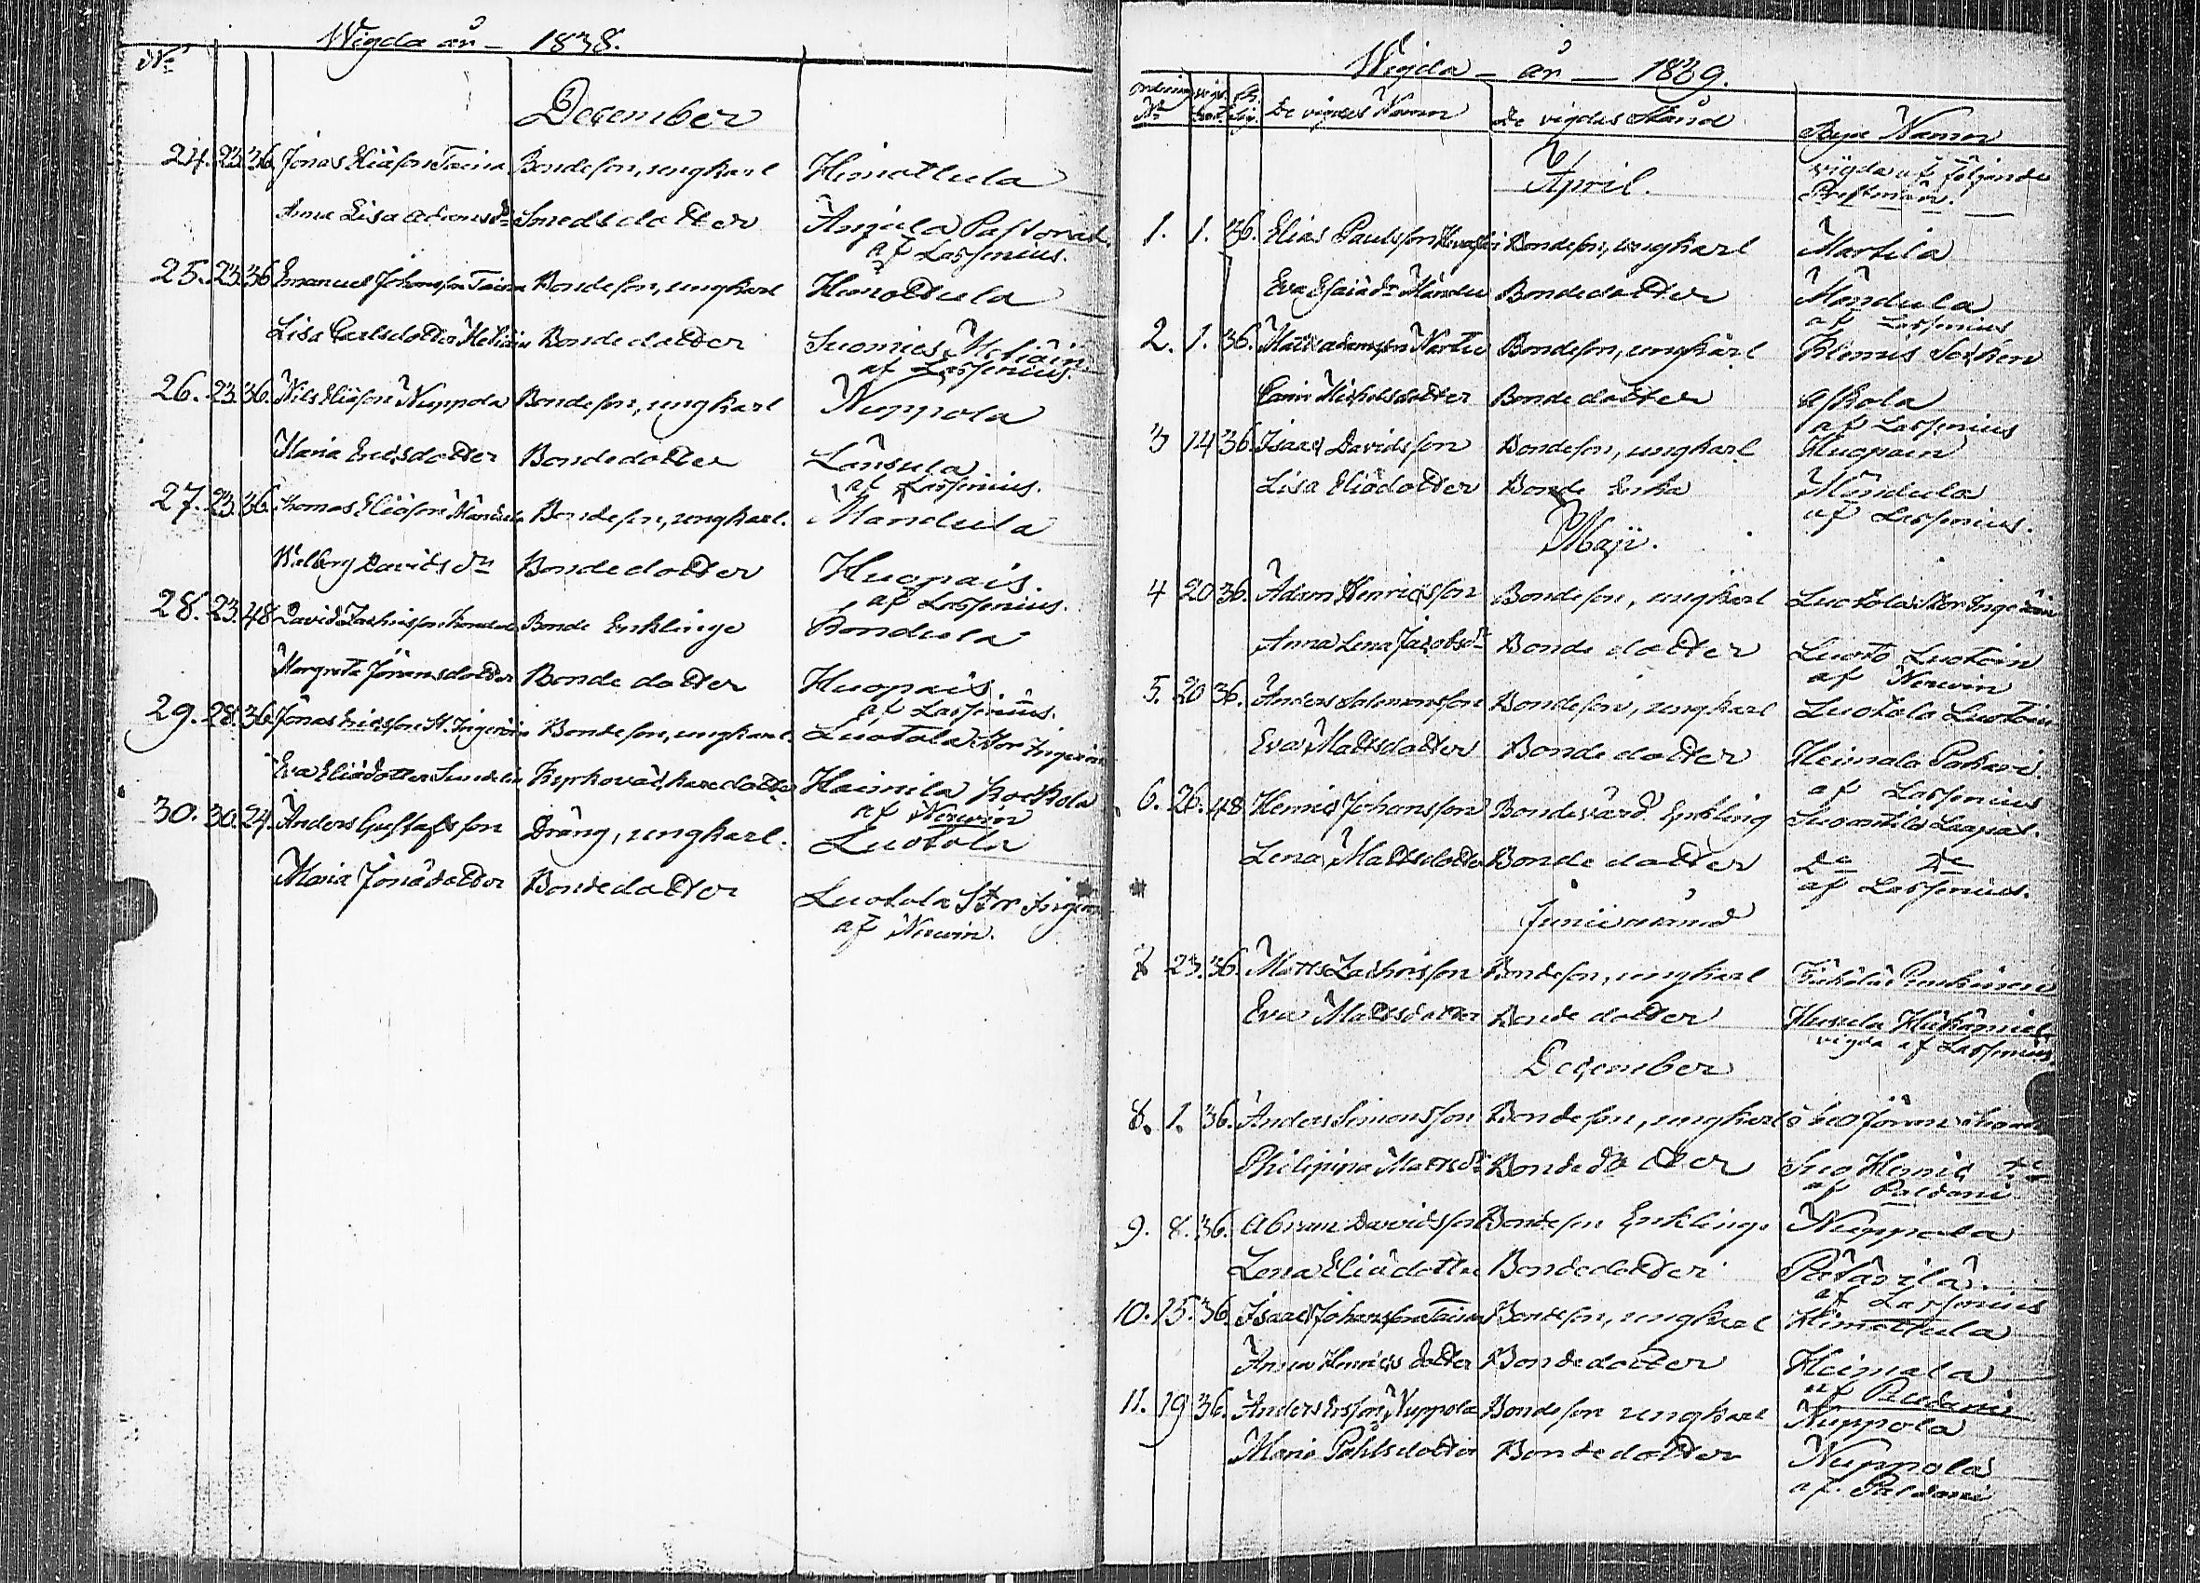 Wigda år 1838.
No
December
24. 23. 36. Jonas Eliäson Taina Bondeson, ungkarl Himottula
Anna Lisa Adamsdr Smeds dotter Anjala Pastorat
af Lassenius.
25. 23. 36. Emanuel Johansson Taina Bondeson, ungkarl Himottula
Lisa Carlsdotter Bondedotter Suomies
af Lassenius.
26. 23. 36. Nils Eliäson Nuppola Bondeson, ungkarl Nuppola
Maria Ericsdotter Bondedotter Länsula
af Lassenius.
27. 23. 36. Thomas Eliäson Mändula Bondeson, ungkarl. Mändula
Walborg Davidsdr Bondedotter Huopais.
af Lassenius.
28. 23. 48. David Bonde Enklinge
Margreta Jöransdotter Bonde dotter Huopais
af Lassenius.
29. 28. 36. Jonas Ericsson St. Ingeröin Bondeson, ungkarl. Luotola Stor Ingeröin
Eva Eliädotter Kyrkovächtaredotter Haimila
af Nerwin
30. 30. 24. Anders Gustafsson Dräng, ungkarl. Luotola
Maria Jonädotter Bondedotter Luotola Stor
af Nerwin.
Wigda år 1839.
No De vigdes Namn De vigdes Stånd Byar Namn
April. vigda af följande
Prestmän.
1. 1. 36. Elias Paulsson Bondeson, ungkarl Martila
Eva Esaiädr Mändu Bondedotter Mändula
af Lassenius
2. 1. 36. Matts Adamsson Bondeson, ungkarl Klemis Socken
Carin Michelsdotter Bondedotter Askola
af Lassenius
3 14 36. Isaac Davidsson Bondeson, ungkarl Huopain
Lisa Eliädotter Bonde Enka Mändula
af Lassenius.
Maji.
4 20 36. Adam Henricsson Bondeson, ungkarl Luotola Stor Ingeröin
Anna Lena Jacobsdr Bonde dotter Luoto Luotoin
af Nerwin
5. 20 36. Anders Salomonsson Bondeson, ungkarl Luotola Luotoin
Eva Mattsdotter Bonde dotter Heimala Pakari.
af Lassenius
6. 26. 48 Henric Johansson Bondevärd Enkling
Lena Mattsdotter Bonde dotter Do Do
af Lassenius.
Junii månad
7 23. 36. Matts Zachrisson Bondeson, ungkarl
Eva Mattsdotter Bonde dotter Husula
vigda af Lassenius
December
8. 1. 36. Anders Simonsson Bondeson, ungkarl
Philipina Mattsdr Bondedotter Suo Henric
af Paldani
9. 8. 36. Abram Davidsson Bondeson Enklinge Nuppola
Lena Eliädotter Bondedotter
af Lassenius
10. 15. 36. Isaac Johansson Taina Bondeson, ungkarl Himottula
Anna Henricsdotter Bondedotter Heimala
af Paldani
11. 19 36. Anders Ersson Nuppola Bondeson ungkarl Nuppola
Maria Påhlsdotter Bondedotter Nuppola
af. Paldani